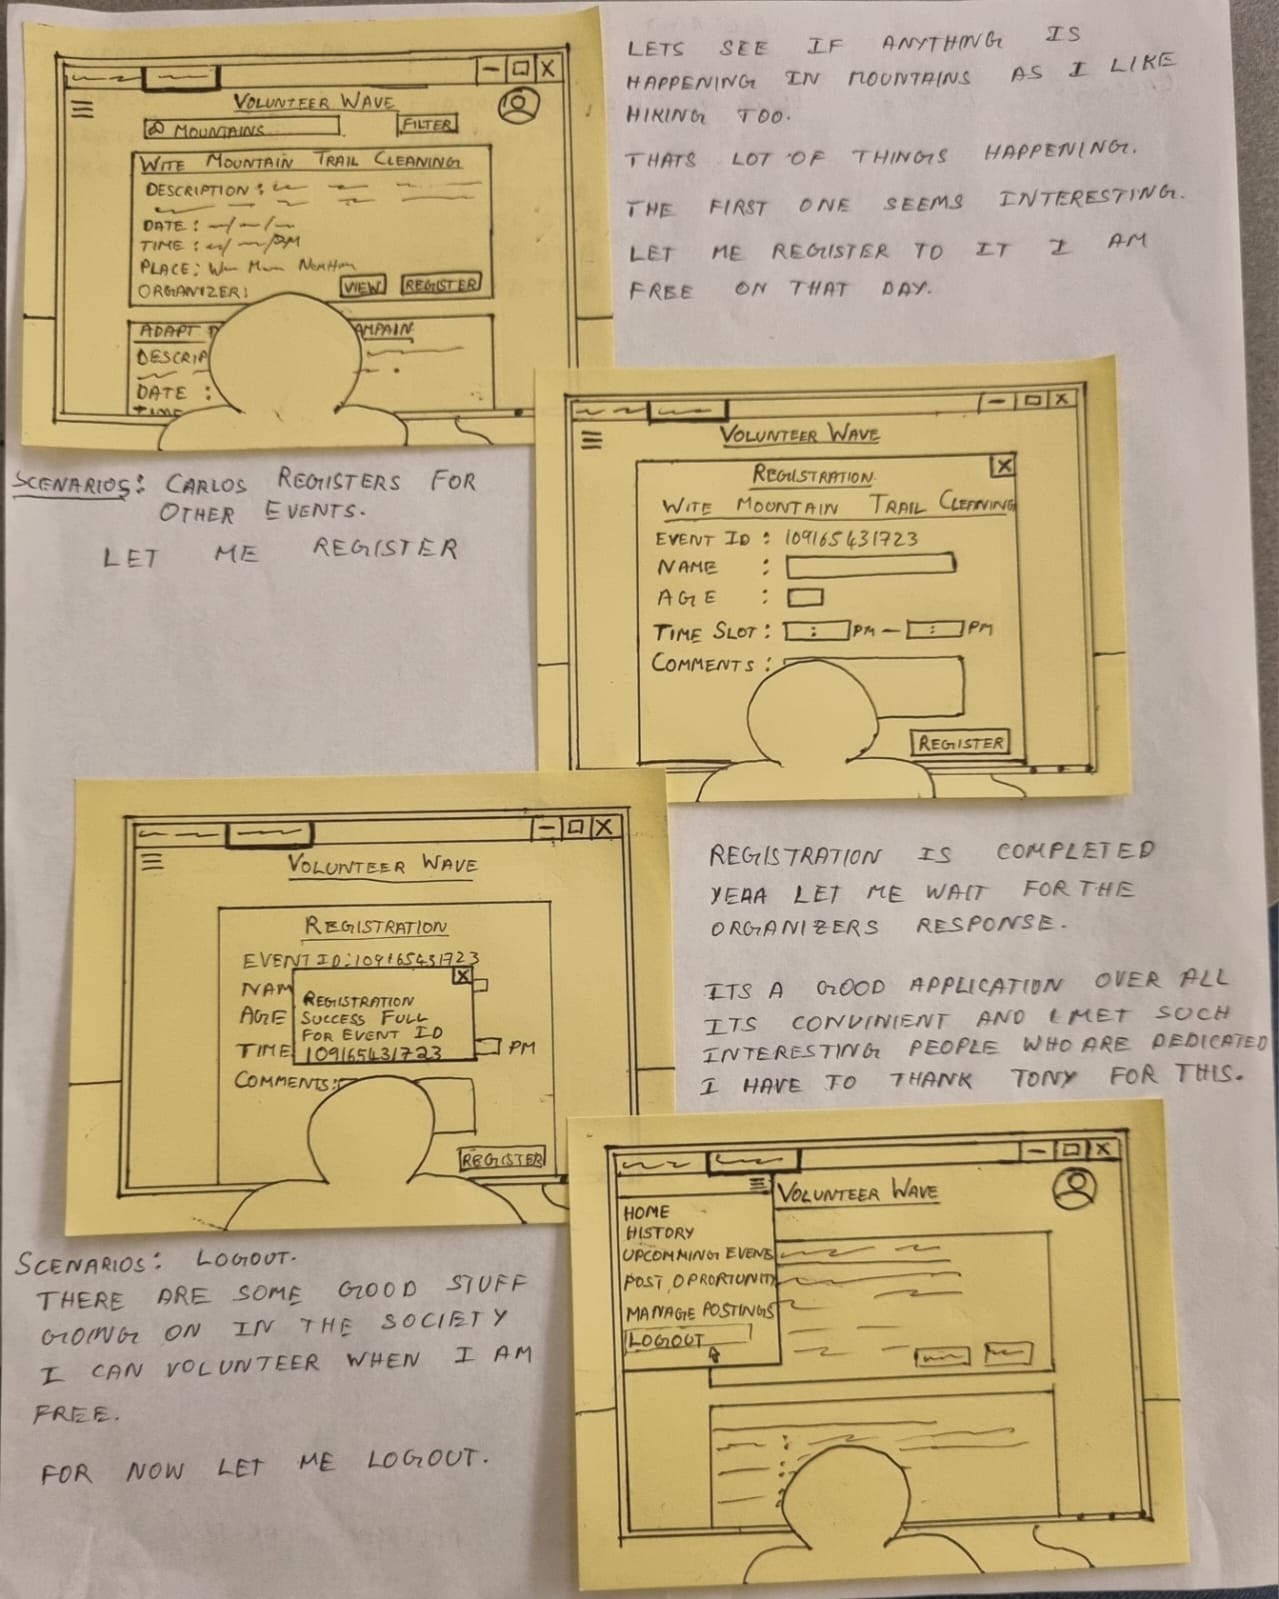 VOLUNTEER WAVE
MOUNTAINS
FILTER
WITE MOUNTAIN TRAIL CLEANING
DESCRIPTION :
DATE :
TIME : PM
PLACE :
ORGANIZER :
VIEW REGISTER
ADAPT AMPAIN
DESCRIP
DATE :
TIME
LETS SEE IF ANYTHING IS
HAPPENING IN MOUNTAINS AS I LIKE
HIKING TOO.
THATS LOT OF THINGS HAPPENING.
THE FIRST ONE SEEMS INTERESTING.
LET ME REGISTER TO IT I AM
FREE ON THAT DAY.
SCENARIOS: CARLOS REGISTERS FOR
OTHER EVENTS.
LET ME REGISTER
VOLUNTEER WAVE
REGISTRATION
X
WITE MOUNTAIN TRAIL CLEANING
EVENT ID : 109165431723
NAME :
AGE :
TIME SLOT : : PM – : PM
COMMENTS :
REGISTER
VOLUNTEER WAVE
REGISTRATION
EVENT ID:109165431723
NAM
AGE
TIME PM
COMMENTS:
X
REGISTRATION
SUCCESS FULL
FOR EVENT ID
109165431723
REGISTER
REGISTRATION IS COMPLETED
YEAA LET ME WAIT FOR THE
ORGANIZERS RESPONSE.
ITS A GOOD APPLICATION OVER ALL
ITS CONVINIENT AND I MET SUCH
INTERESTING PEOPLE WHO ARE DEDICATED
I HAVE TO THANK TONY FOR THIS.
SCENARIOS: LOGOUT.
THERE ARE SOME GOOD STUFF
GOING ON IN THE SOCIETY
I CAN VOLUNTEER WHEN I AM
FREE.
FOR NOW LET ME LOGOUT.
VOLUNTEER WAVE
HOME
HISTORY
UPCOMMING EVENS
POST OPRORTUNITY
MANAGE POSTINGS
LOGOUT